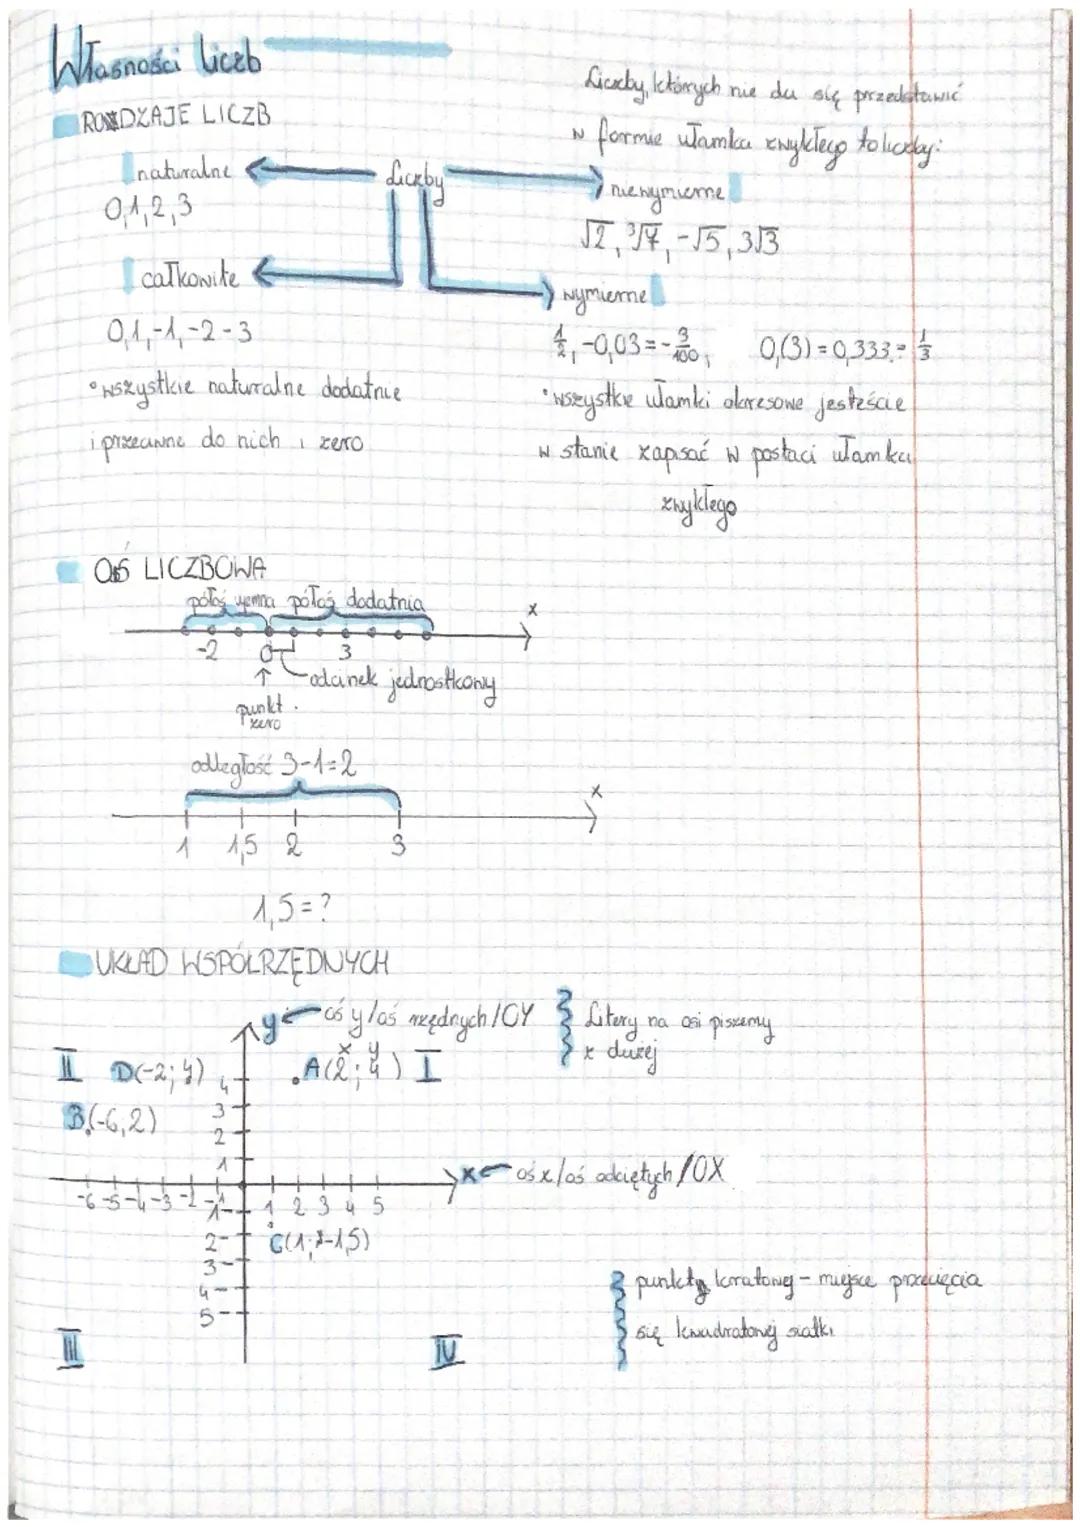 Własności liczb
RODZAJE LICZB
Liczby, których nie da się przedstawić
w formie ułamka zwykłego to liczby:
naturalne
Liczby
niewymierne
0,1,2,3
√2, ³√7, -√5, 3√3
całkowite
wymierne
0,1,-1,-2-3
1/2, -0,03=-3/100, 0,(3)=0,333.=1/3
• wszystkie naturalne dodatnie
i przeciwne do nich i zero
• wszystkie ułamki okresowe jesteście
w stanie zapisać w postaci ułamka
zwykłego
OŚ LICZBOWA
półoś ujemna półoś dodatnia
x
-2 0 3
odcinek jednostkowy
punkt
zero
odległość 3-1=2
x
1 1,5 2 3
1,5=?
UKŁAD WSPÓLRZĘDNYCH
y oś y/oś rzędnych/OY
Litery na osi piszemy
z dużej
x y
II D(-2; 4) A(2; 4) I
4
B(-6,2)
3
2
1
x oś x/oś odciętych/OX
-6 -5 -4 -3 -2 -1 1 2 3 4 5
1
2
C(1; -1,5)
3
4
5
punkty kratowy - miejsce przecięcia
się kwadratowej siatki
III IV